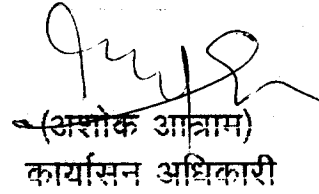 (अशोक आत्राम)
कार्यासन अधिकारी